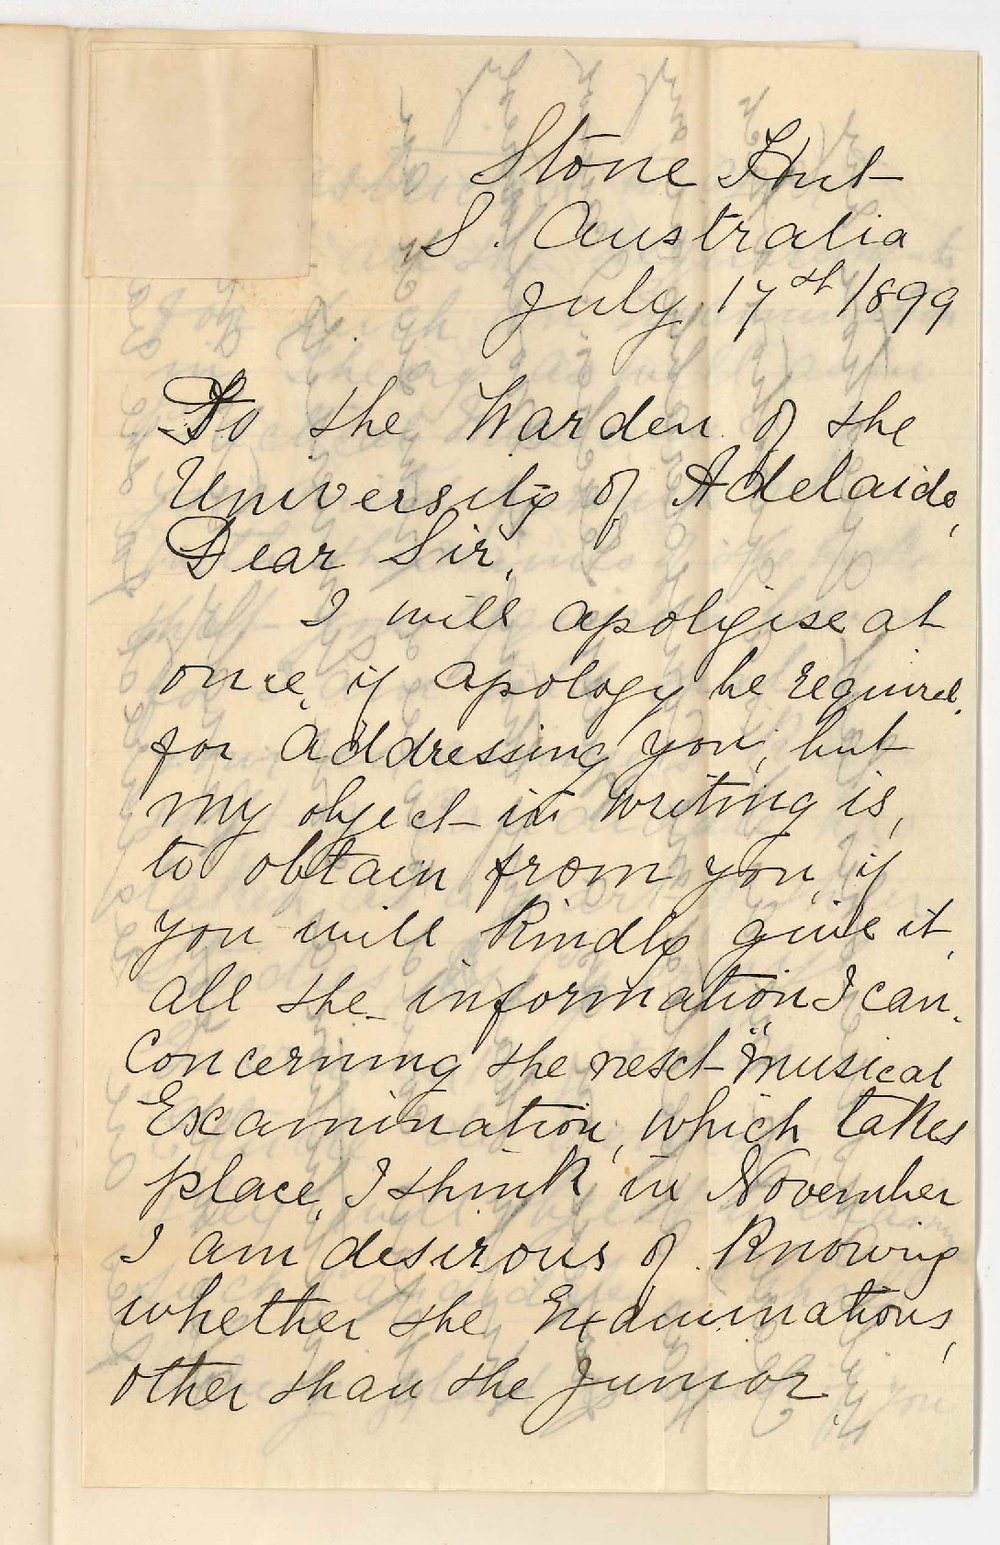 Stone Hut
S. Australia
July 17th 1899
To the Warden of the
University of Adelaide,
Dear Sir,
I will apoligise at
once, if apology be required,
for addressing you, but
my object in writing is,
to obtain from you, if
you will kindly give it,
all the information I can,
concerning the next "musical
Examination, which takes
place, I think, in November
I am desirous of knowing
whether the Examinations,
other than the Junior